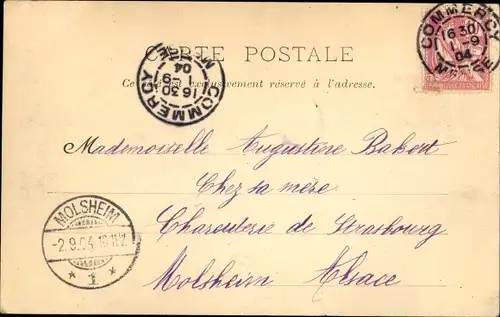 COMMERCY
16 30
1-9
04
MEUSE
CARTE POSTALE
Ce côté est exclusivement réservé à l'adresse.
COMMERCY
16 30
1-9
04
MEUSE
Mademoiselle Augustine Bakert
Chez sa mère
Charcuterie de Strasbourg
Molsheim Alsace
MOLSHEIM
-2.9.04.
* 1 *